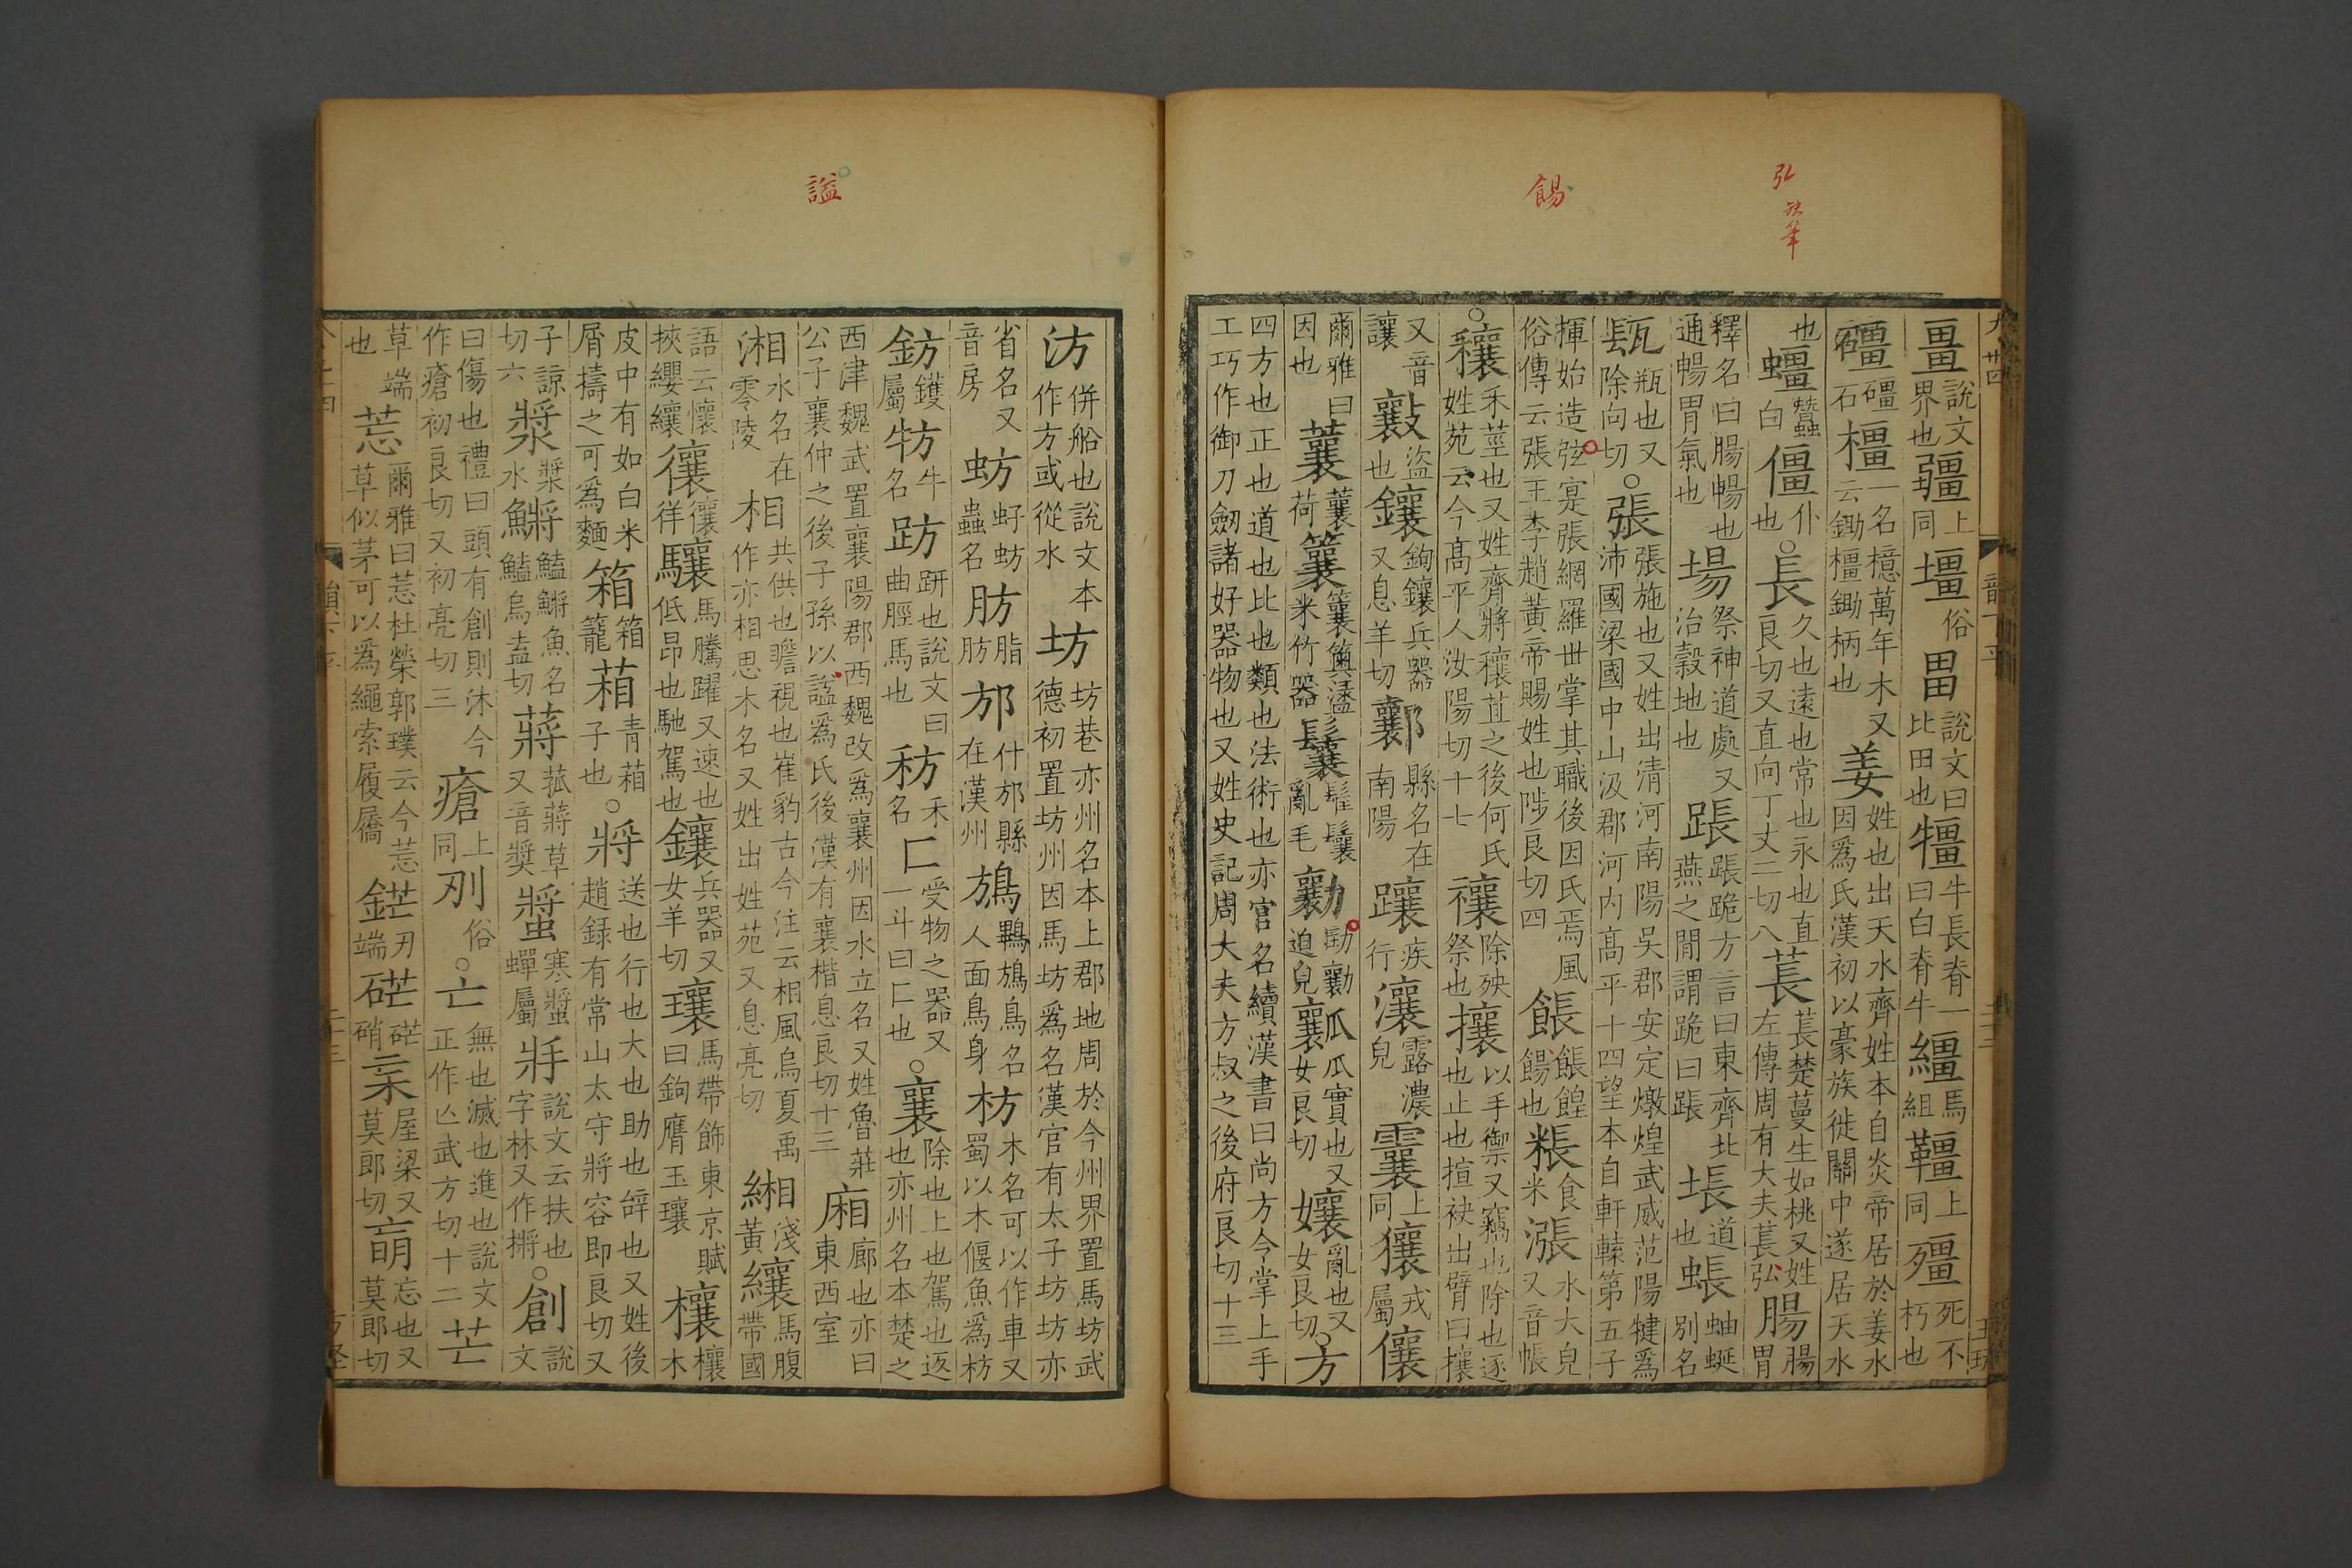 弘
缺筆
餳
謚
畺說文界也疆上同壃俗畕說文曰比田也犅牛長脊一曰白脊牛繮馬組韁上同殭死不朽也
礓礓石橿一名檍萬年木又云鋤橿鋤柄也姜姓也出天水齊姓本自炎帝居於姜水因爲氏漢初以豪族徙關中遂居天水
也蠮蠶白僵仆也○長久也遠也常也永也直良切又直向丁丈二切八萇萇楚蔓生如桃又姓左傳周有大夫萇弘腸腸胃
釋名曰腸暢也通暢胃氣也場祭神道處又治穀地也䠆䠆跪方言曰東齊北燕之閒謂跪曰䠆塲道也蜄蚰蜒別名
瓺瓶也又除向切○張張施也又姓出清河南陽吳郡安定燉煌武威范陽犍爲沛國梁國中山汲郡河內高平十四望本自軒轅第五子
揮始造弦寔張網羅世掌其職後因氏焉風俗傳云張王李趙黃帝賜姓也陟良切四餦餦餭餳也粻食米漲水大皃又音帳
○穰禾莖也又姓齊將穰苴之後何氏姓苑云今高平人汝陽切十七禳除殃祭也攘以手禦又竊也除也逐也止也揎袂出臂曰攘
又音讓㪮盜也鑲鉤鑲兵器又息羊切鄻縣名在南陽躟疾行瀼露濃皃𩆶上同獽戎屬儴
爾雅曰因也蘘蘘荷䉴䉴篗漉米竹器鬤髼鬤亂毛勷劻勷迫皃瓤瓜實也又女良切孃亂也又女良切○方
四方也正也道也比也類也法術也亦官名續漢書曰尚方令掌上手工巧作御刀劒諸好器物也又姓史記周大夫方叔之後府良切十三
汸併船也說文本作方或從水坊坊巷亦州名本上郡地周於今州界置馬坊武德初置坊州因馬坊爲名漢官有太子坊坊亦
省名又音房蚄蚄蟲名肪脂肪邡什邡縣在漢州鴋鸅鴋鳥名人面鳥身枋木名可以作車又蜀以木偃魚爲枋
鈁鑊屬牥牛名趽趼也說文曰曲脛馬也䄱禾名匚受物之器又一斗曰匚也○襄除也上也駕也返也亦州名本楚之
西津魏武置襄陽郡西魏改爲襄州因水立名又姓魯莊公子襄仲之後子孫以謚爲氏後漢有襄楷息良切十三廂廊也亦曰東西室
湘水名在零陵相共供也瞻視也崔豹古今注云相風烏夏禹作亦相思木名又姓出姓苑又息亮切緗淺黃纕馬腹帶國
語云懷挾纓纕忀忀徉驤馬騰躍又速也低昂也馳駕也鑲兵器又女羊切瓖馬帶飾東京賦曰鉤膺玉瓖欀欀木
皮中有如白米屑擣之可爲麵箱箱籠葙青葙子也○將送也行也大也助也辝也又姓後趙録有常山太守將容即良切又
子諒切六漿漿水鱂鱃鱂魚名鱃烏盍切蔣菰蔣草又音奬螿寒螿蟬屬𤕭說文云扶也字林又作㨄○創說文
曰傷也禮曰頭有創則沐今作瘡初良切又初亮切三瘡上同刅俗○亡無也滅也進也說文正作亾武方切十二芒
草端也莣爾雅曰莣杜榮郭璞云今莣草似茅可以爲繩索履屩鋩刃端硭硭硝杗屋梁又莫郎切𥅽忘也又莫郎切